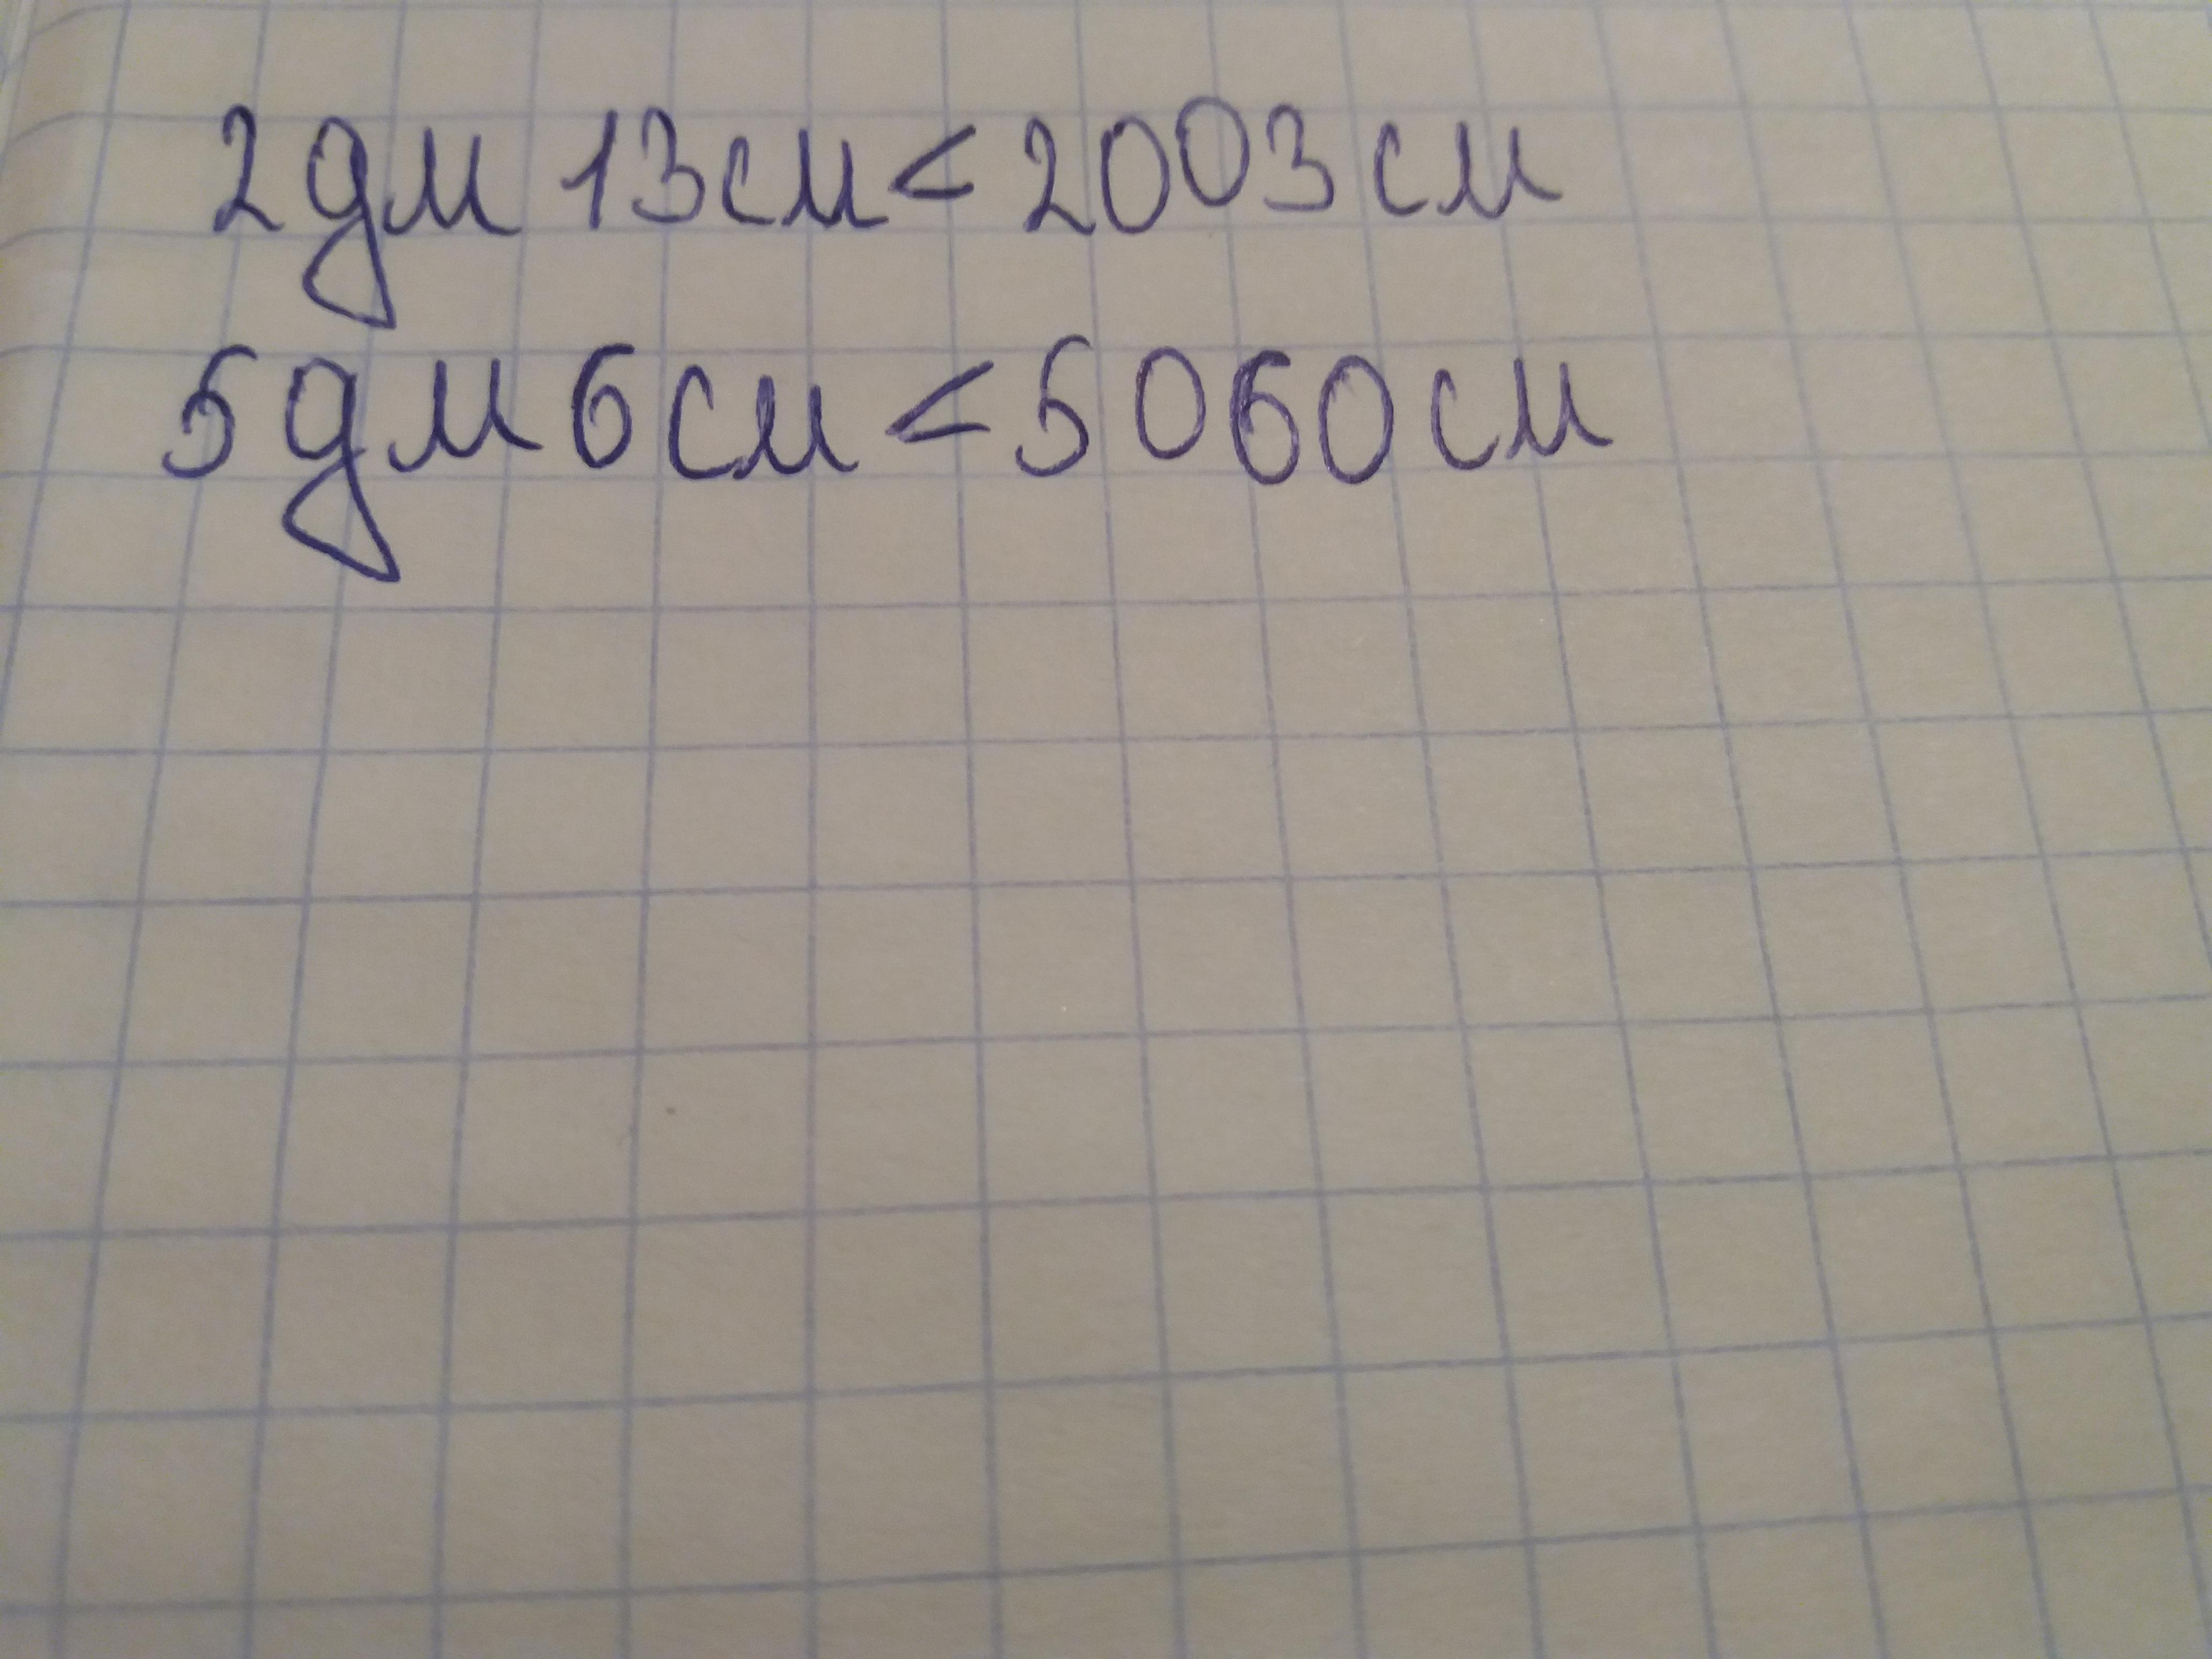 2дм 13см < 2003 см
5дм 6см < 5060 см